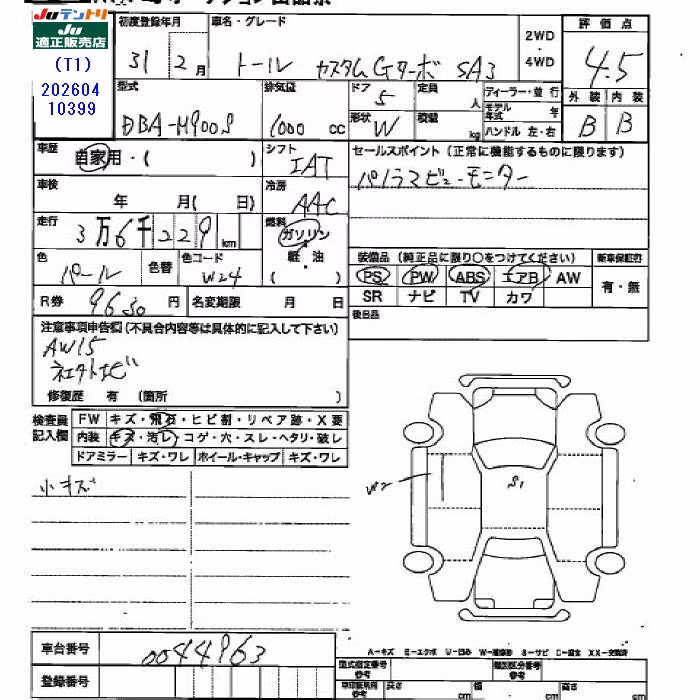 Juテントリ
Ju
適正販売店
(T1)
202604
10399
初度登録年月
31 2月
車名・グレード
トール カスタムGターボ SA3
2WD
・
4WD
評価点
4.5
外装 内装
B B
型式
DBA-M900S
排気量
1000 cc
ドア
5
定員
人
形状
W
積載
kg
ディーラー・並行
モデル年式 年
ハンドル 左・右
車歴
自家用・( )
シフト
IAT
セールスポイント (正常に機能するものに限ります)
パノラマビューモニター
車検
年 月( 日)
冷房
AAC
走行
3万6千229km
燃料
ガソリン
軽・油
( )
装備品 (純正品に限り○をつけてください)
新車保証書
PS PW ABS エアB AW
SR ナビ TV カワ
有・無
色
パール
色替
色コード
W24
R券 9630円
名変期限 月 日
後日品
注意事項申告欄(不具合内容等は具体的に記入して下さい)
AW15
修復歴 有 (箇所 )
検査員
記入欄
FW キズ・飛石・ヒビ割・リペア跡・X要
内装 キズ・汚レ・コゲ・穴・スレ・ヘタリ・破レ
ドアミラー キズ・ワレ ホイール・キャップ キズ・ワレ
小キズ
W2
S1
A-キズ E-エクボ U-凹み W-補修跡 S-サビ C-腐食 XX-交換済
車台番号
0044963
登録番号
型式指定番号
参考
類別区分番号
参考
車印証明用
参考
長さ cm
幅 cm
高さ cm